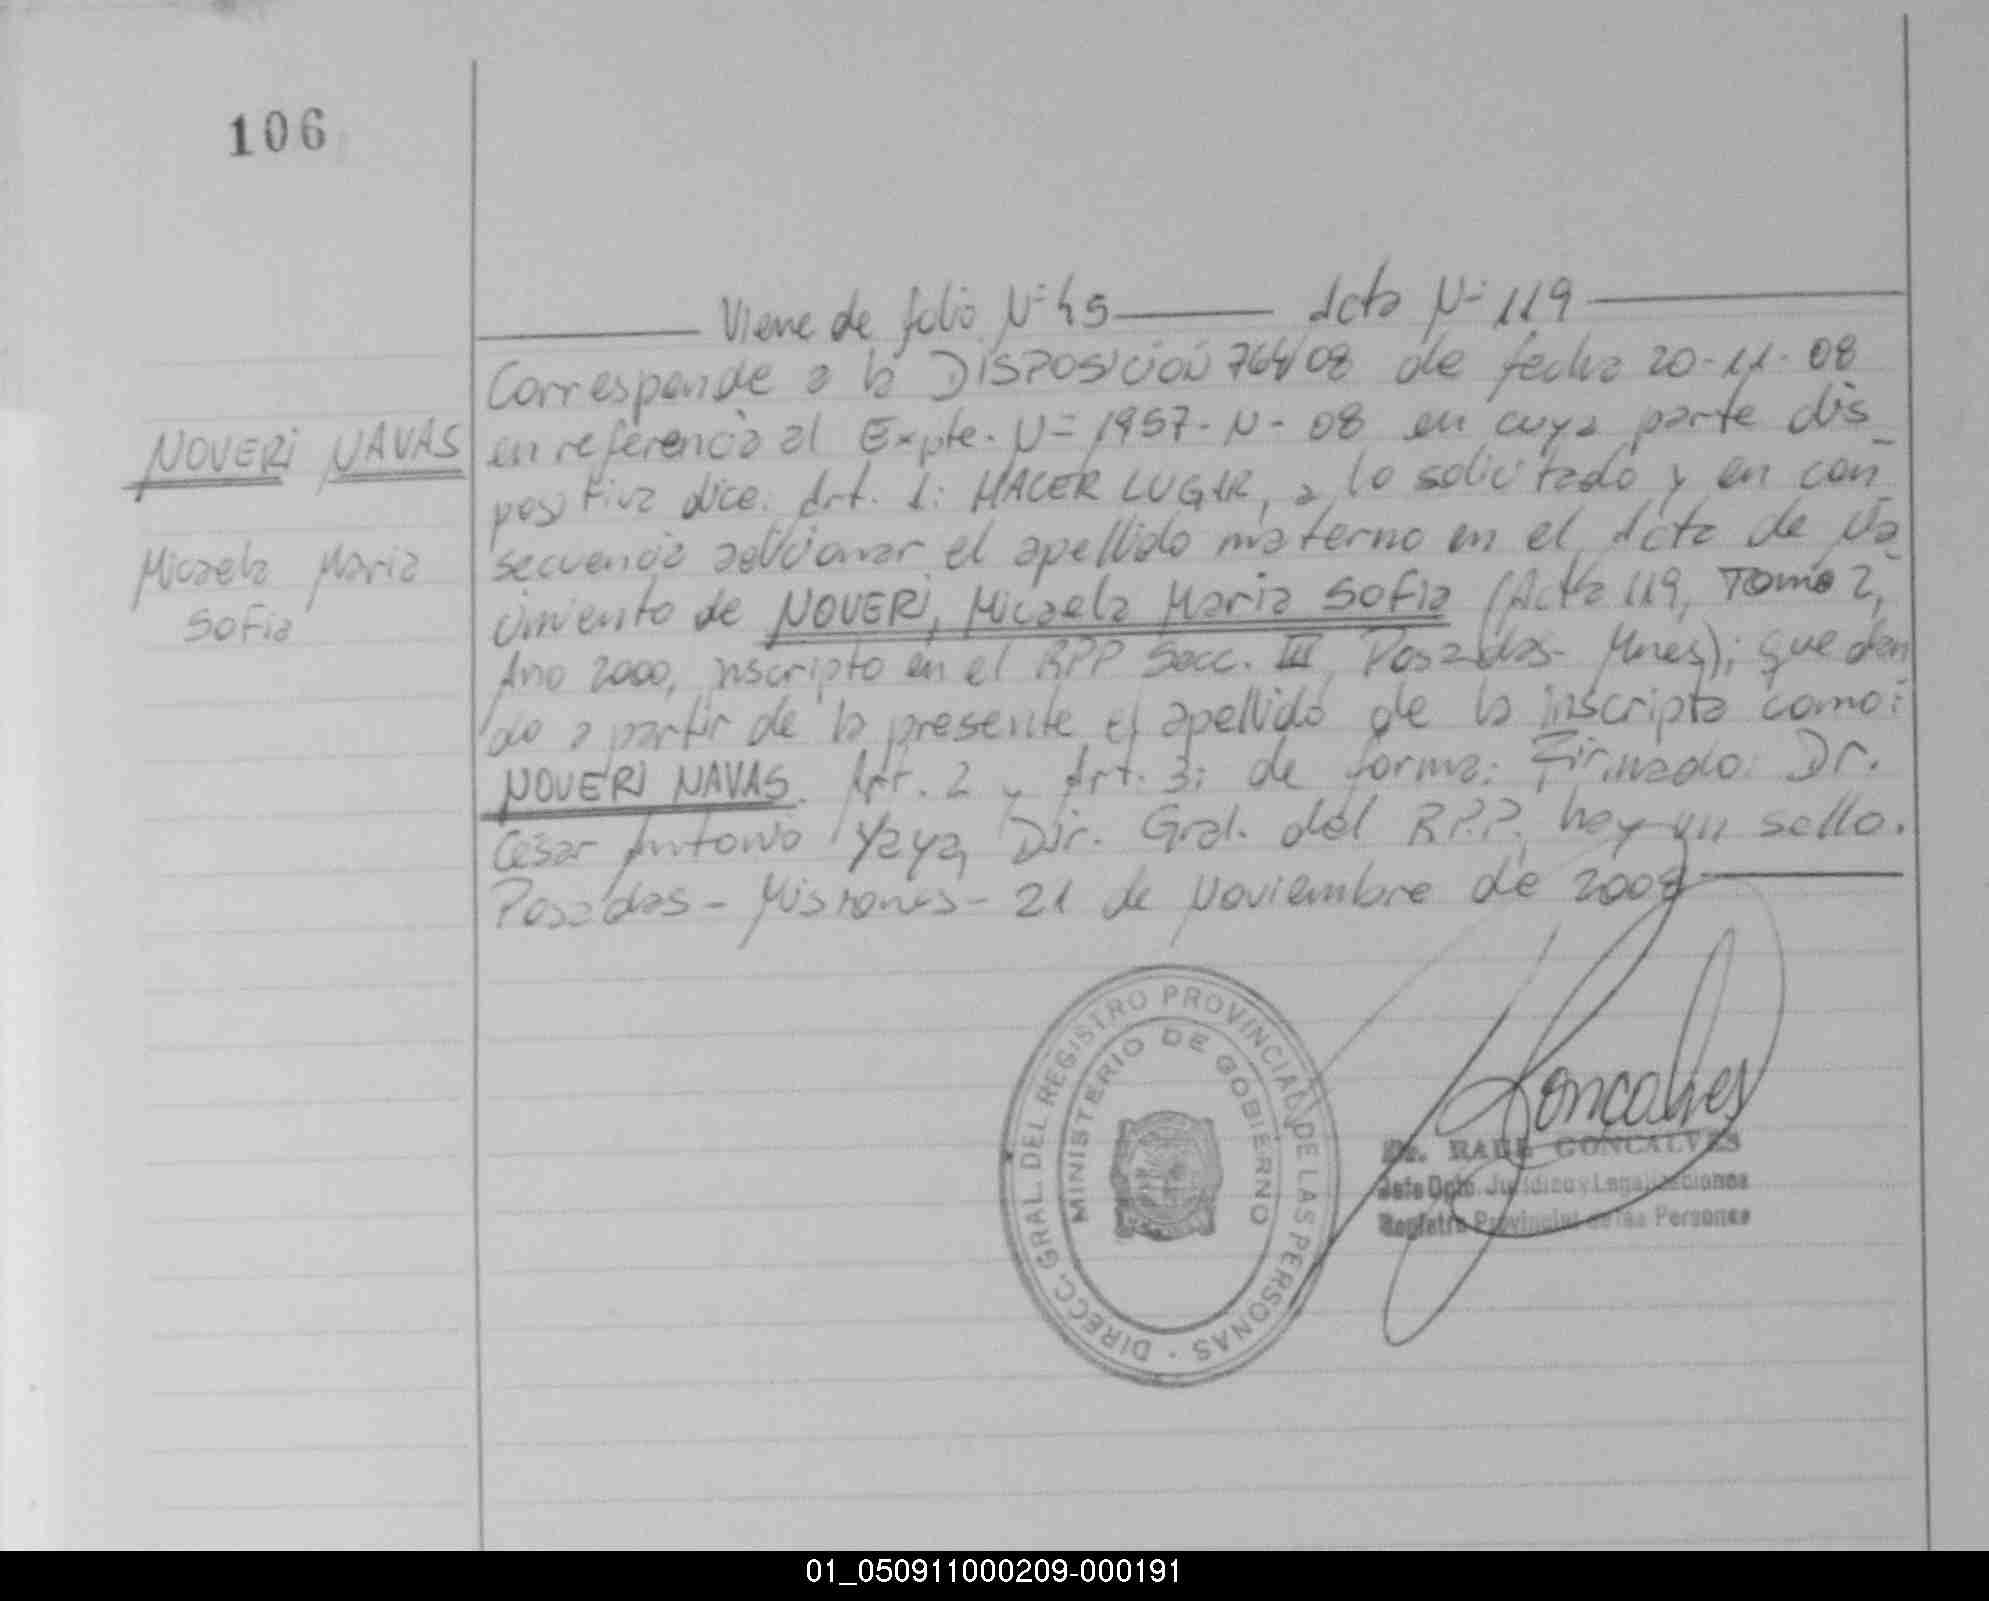 106
Viene de folio Nº 45 Acta Nº 119
Corresponde a la DISPOSICIÓN 764/08 de fecha 20-11-08
NOVERI NAVAS
en referencia al Expte. Nº 1957-N-08 en cuya parte dis_
positiva dice: Art. 1: HACER LUGAR, a lo solicitado y en con
Micaela Maria
secuencia adicionar el apellido materno en el Acta de Na_
Sofia
cimiento de NOVERI, Micaela Maria Sofia (Acta 119, Tomo 2,
Año 2000, inscripto en el RPP Secc. III, Posadas- Mnes); quedan
do a partir de la presente el apellido de la inscripta como:
NOVERI NAVAS. Art. 2 y Art. 3: de forma: Firmado: Dr.
César Antonio Yaya, Dir. Gral. del R.P.P. hay un sello.
Posadas - Misiones - 21 de Noviembre de 2008
DIRECC. GRAL. DEL REGISTRO PROVINCIAL DE LAS PERSONAS
MINISTERIO DE GOBIERNO
Goncalves
Dr. RAUL GONCALVES
Jefe Dpto. Jurídico y Legalizaciones
Registro Provincial de las Personas
01_050911000209-000191